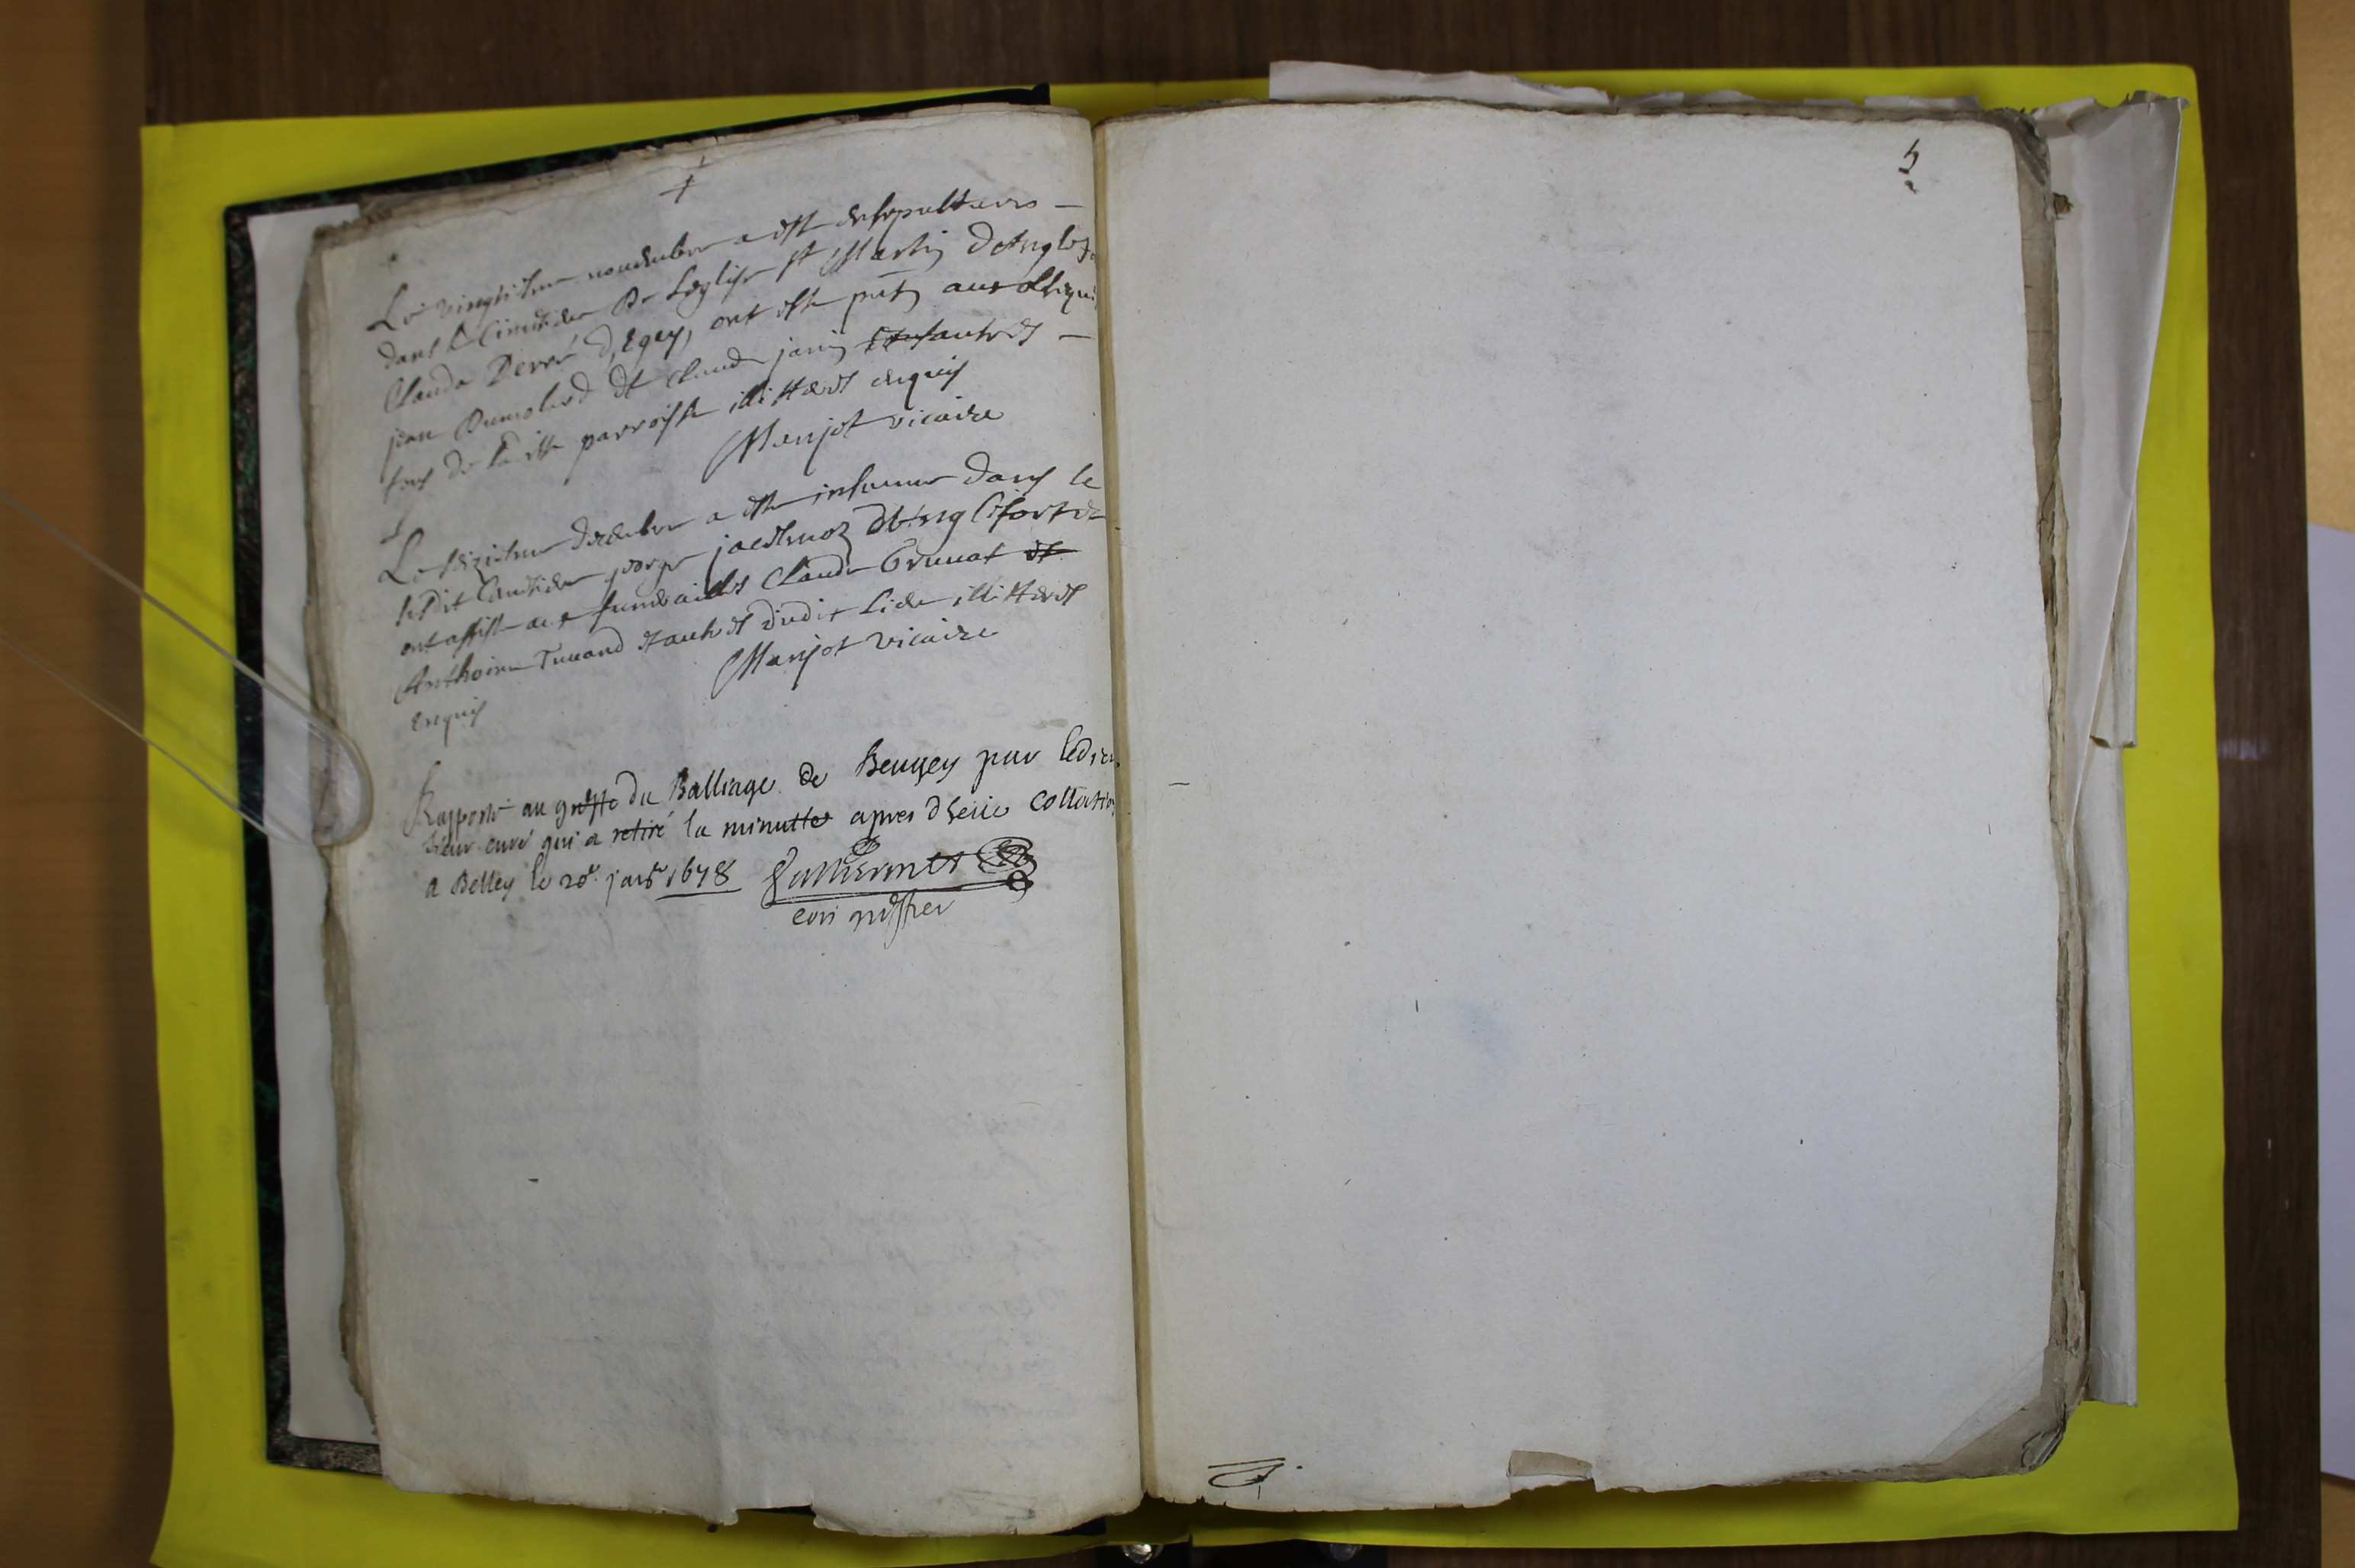 Le vingtiesme nouembre a esté ensepulturés
dans le Cimetiere de Leglise St Martin D'Anglef
Claude Perré D'Egey, ont esté pnts aux obseques
jean Dumolard et Claude janin et autres
tous de la parroisse illitterés enquis
Manjot vicaire
Le seiziesme decembre a esté inhumé dans le
susdit Cimetiere george D'Anglefort et
ont assisté aux funerailles Claude Brunat et
Anthoine Tuuand et autres dudit Lieu illitterés
enquis
Manjot vicaire
Rapporté au greffe du Balliage de Beugey par ledit
sieur curé qui a retiré la minutte apres dheue collation
a Belley le 20e janr 1678
con greffier
5